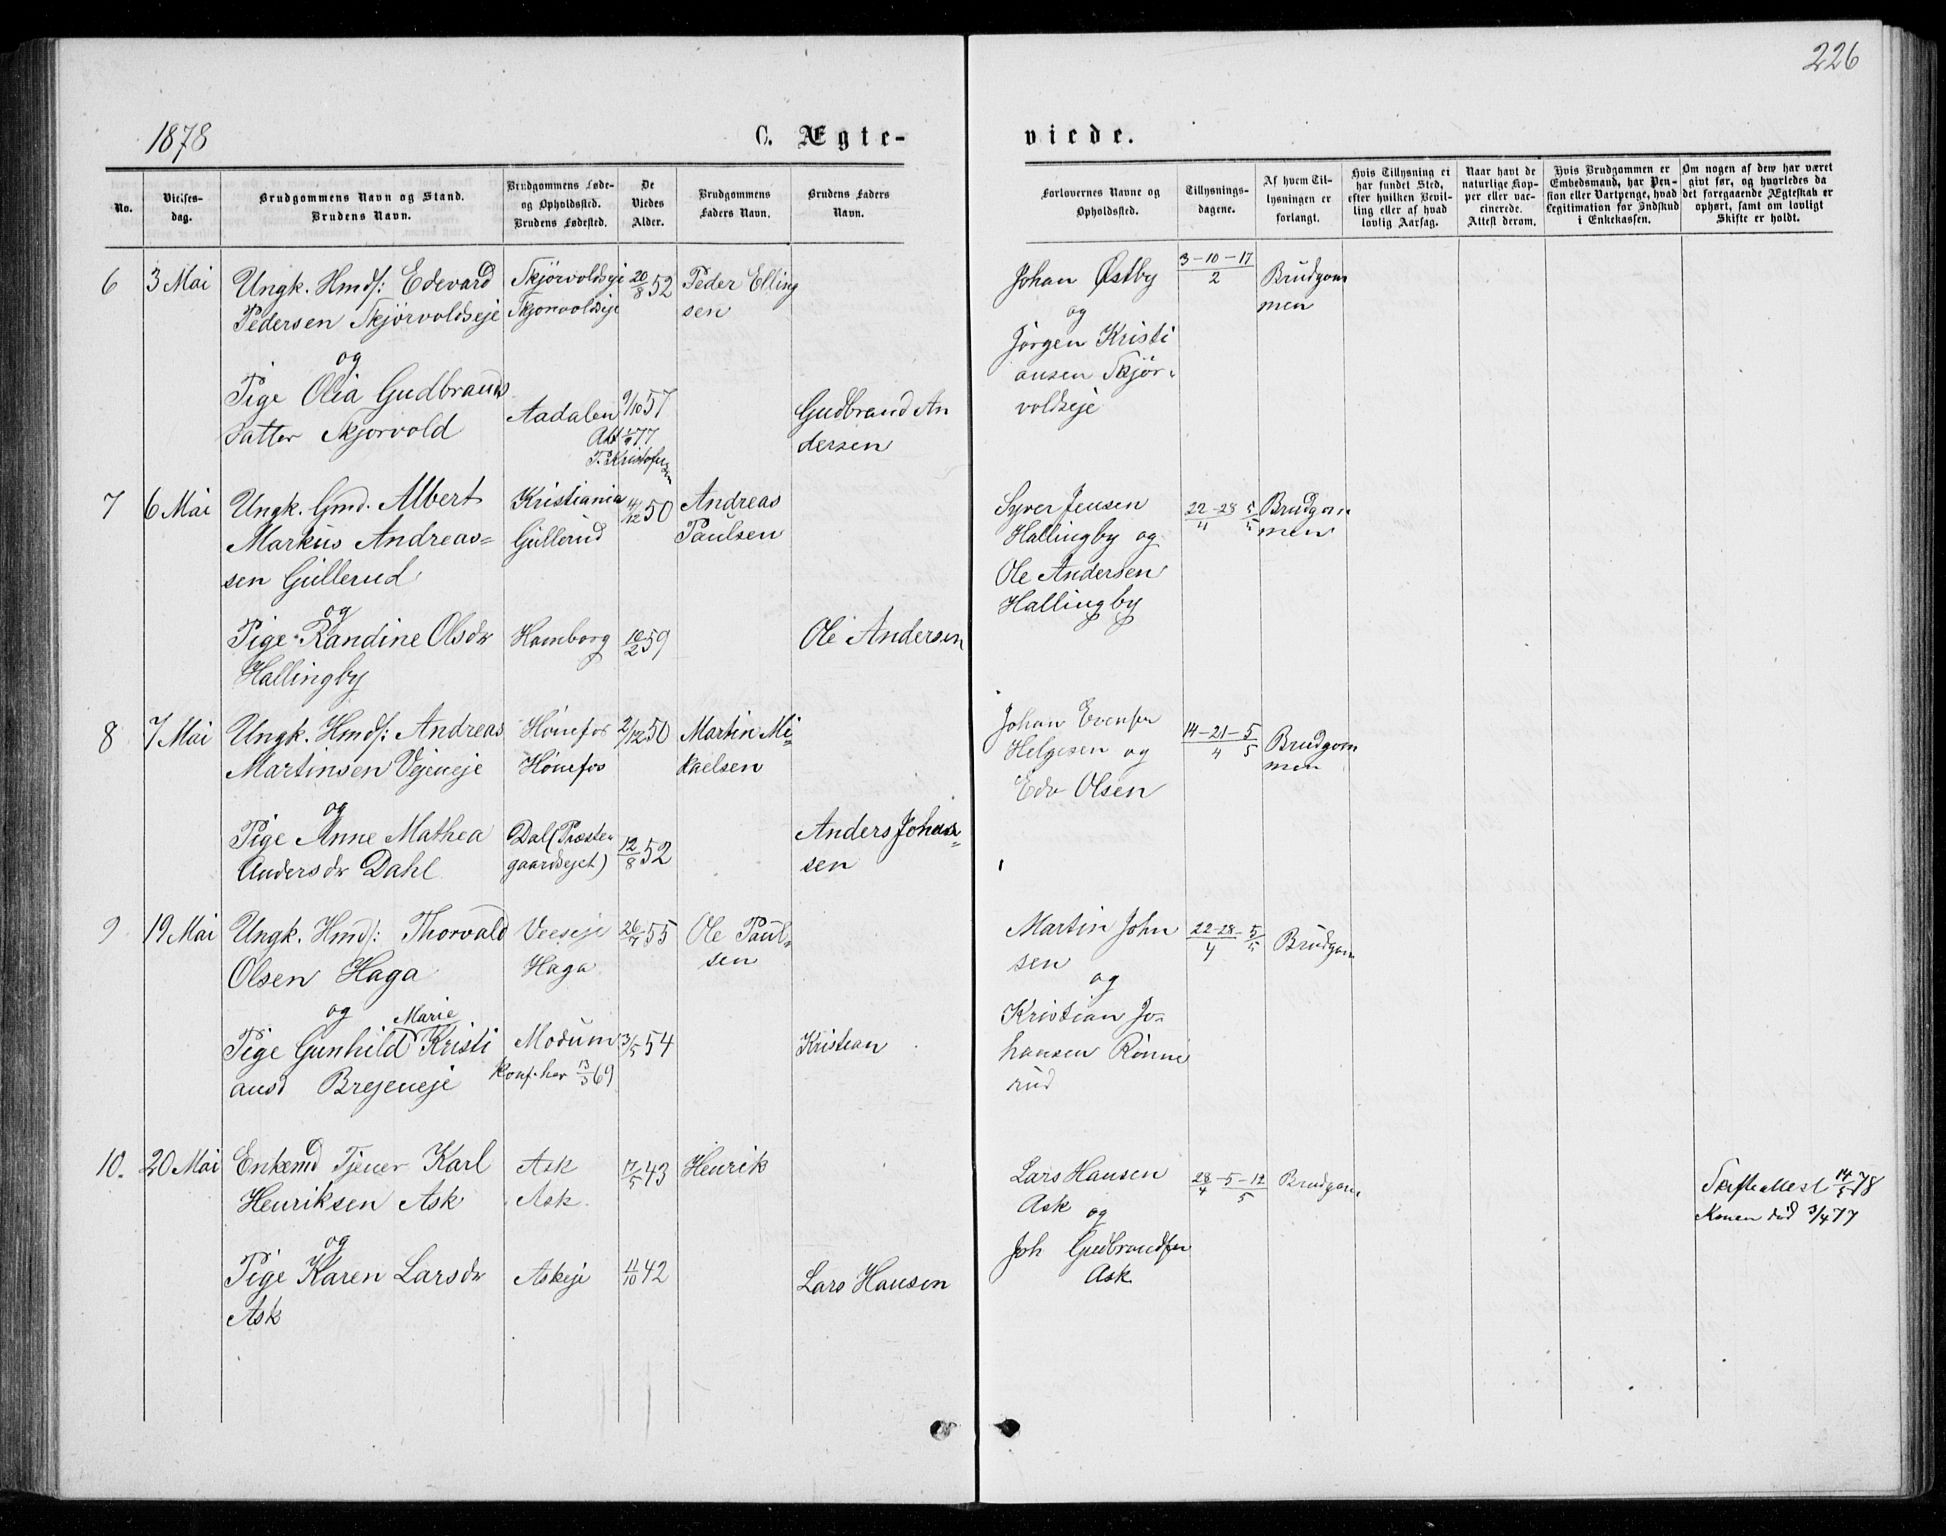 226
1878
C. Ægte-
viede.
No.
Vielses-
dag.
Brudgommens Navn og Stand.
Brudens Navn.
Brudgommens Føde-
og Opholdssted.
Brudens Fødested.
De
Viedes
Alder.
Brudgommens
Faders Navn.
Brudens Faders
Navn.
Forlovernes Navne og
Opholdssted.
Tillysnings-
dagene.
Af hvem Til-
lysningen er
forlangt.
Hvis Tillysning ei
har fundet Sted,
efter hvilken Bevil-
ling eller af hvad
lovlig Aarsag.
Naar havt de
naturlige Kop-
per eller vac-
cinerede.
Attest derom.
Hvis Brudgommen er
Embedsmand, har Pen-
sion eller Vartpenge, hvad
Legitimation for Indskud
i Enkekassen.
Om nogen af dem har været
gift før, og hvorledes da
det foregaaende Ægteskab er
ophørt, samt om lovligt
Skifte er holdt.
6
3 Mai
Ungk. Hmdf: Edevard
Pedersen Skjørvoldseje
og
Pige Olia Gudbrands
datter Skjørvold
Skjørvoldseje
Skjørvoldseje
Aadalen
20/8 52
9/10 57
Peder Elling
sen
Gudbrand An
dersen
Johan Østby
og
Jørgen Kristi
ansen Skjør-
voldseje
3-10-17
2
Brudgom
men
7
6 Mai
Ungk. Gmd. Albert
Markus Andreas=
sen Gullerud
og
Pige Randine Olsdr
Hallingby
Kristiania
Gullerud
Homborg
14/12 50
10/2 59
Andreas
Paulsen
Ole Andersen
Syver Jensen
Hallingby og
Ole Andersen
Hallingby
22-28 5
4 5
Brudgom
men
8
7 Mai
Ungk. Hmdf: Andreas
Martinsen Vejeneje
og
Pige Anne Mathea
Andersdr Dahl
Hønefos
Hønefos
Dal (Præste-
gaardsejet)
2/12 50
12/8 52
Martin Mi-
kaelsen
Anders Johan=
sen
Johan Evensen
Helgesen og
Edv Olsen
14-21-5
4 5
Brudgom
men
9
19 Mai
Ungk. Hmdf: Thorvald
Olsen Haga
og Marie
Pige Gunhild Kristi
ansd Brejeneje
Veeseje
Haga
Modum
Konf. her 13/3 69
26/7 55
3/5 54
Ole Paul-
sen
Kristian
Martin John
sen
og
Kristian Jo-
hansen Rønne
rud
22-28-5
4 5
Brudgom
10.
20 Mai
Enkemd Tjener Karl
Henriksen Ask
og
Pige Karen Larsdr
Ask
Ask
Ask
Askeje
17/5 43
11/10 42
Henrik
Lars Hansen
Lars Hansen
Ask og
Joh Gudbrandsen
Ask
28-5-12
4 5
Brudgom
Skifteattest 14/5 78
Konen død 3/4 77